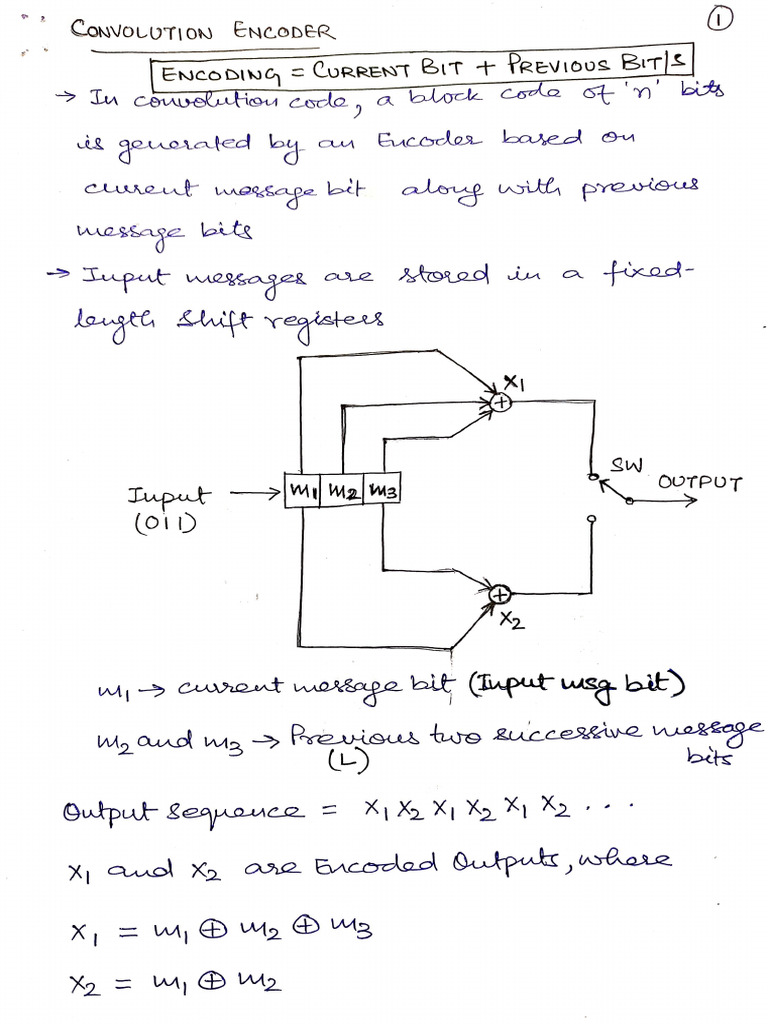 1
CONVOLUTION ENCODER
ENCODING = CURRENT BIT + PREVIOUS BIT/S
→ In convolution code, a block code of 'n' bits
is generated by an Encoder based on
current message bit along with previous
message bits
→ Input messages are stored in a fixed-
length shift registers
X1
+
SW
OUTPUT
m1 m2 m3
Input
(011)
+
X2
m1 → current message bit (Input msg bit)
m2 and m3 → Previous two successive message
(L) bits
Output sequence = X1 X2 X1 X2 X1 X2 ...
X1 and X2 are Encoded Outputs, where
X1 = m1 ⊕ m2 ⊕ m3
X2 = m1 ⊕ m2